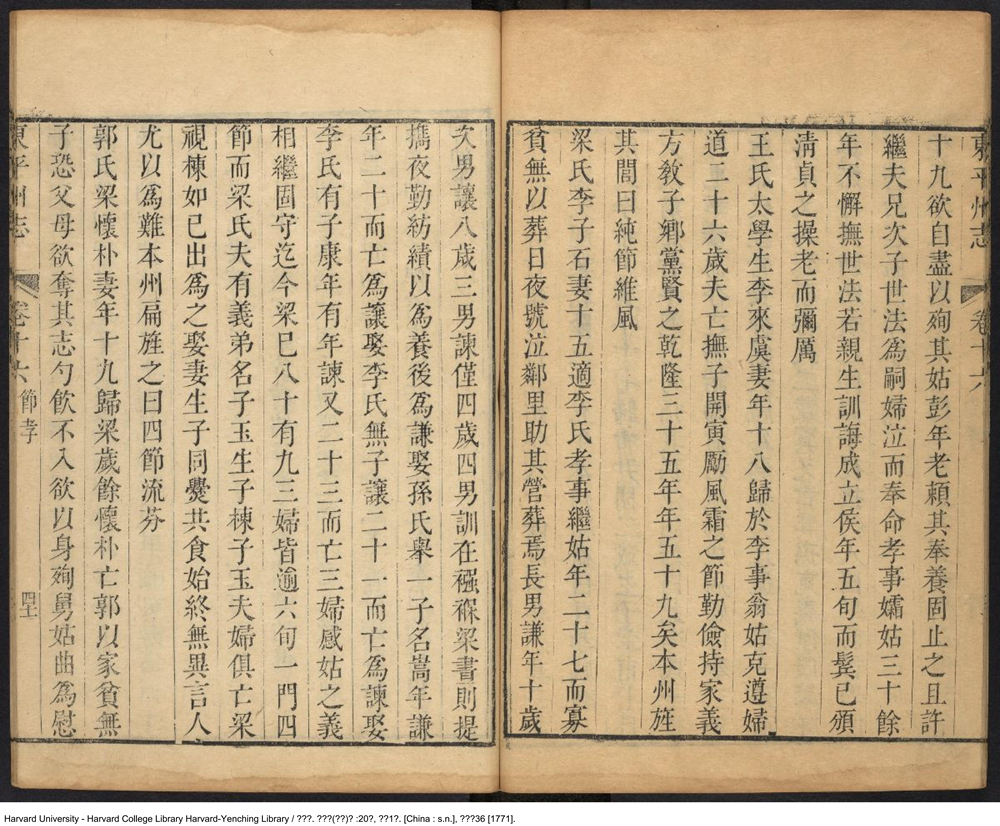 東平州志 卷十六
十九欲自盡以殉其姑彭年老頼其奉養固止之且許
繼夫兄次子世法爲嗣婦泣而奉命孝事孀姑三十餘
年不懈撫世法若親生訓誨成立侯年五旬而鬂已頒
淸貞之操老而彌厲
王氏太學生李來虞妻年十八歸於李事翁姑克遵婦
道二十六歲夫亡撫子開寅勵風霜之節勤儉持家義
方敎子鄉黨賢之乾隆三十五年年五十九矣本州旌
其閭曰純節維風
梁氏李子石妻十五適李氏孝事繼姑年二十七而寡
貧無以葬日夜號泣鄰里助其營葬焉長男謙年十歲
次男讓八歲三男諫僅四歲四男訓在襁褓梁晝則提
攜夜勤紡績以爲養後爲謙娶孫氏舉一子名嵩年謙
年二十而亡爲讓娶李氏無子讓二十一而亡爲諫娶
李氏有子康年有年諫又二十三而亡三婦感姑之義
相繼固守迄今梁巳八十有九三婦皆逾六旬一門四
節而梁氏夫有義弟名子玉生子棟子玉夫婦俱亡梁
視棟如巳出爲之娶妻生子同爨共食始終無異言人
尤以爲難本州扁旌之曰四節流芬
郭氏梁懷朴妻年十九歸梁歲餘懷朴亡郭以家貧無
子恐父母欲奪其志勺飮不入欲以身殉舅姑曲爲慰
東平州志 卷十六 節孝
Harvard University - Harvard College Library Harvard-Yenching Library / ???. ???(??)? :20?, ??1?. [China : s.n.], ???36 [1771].